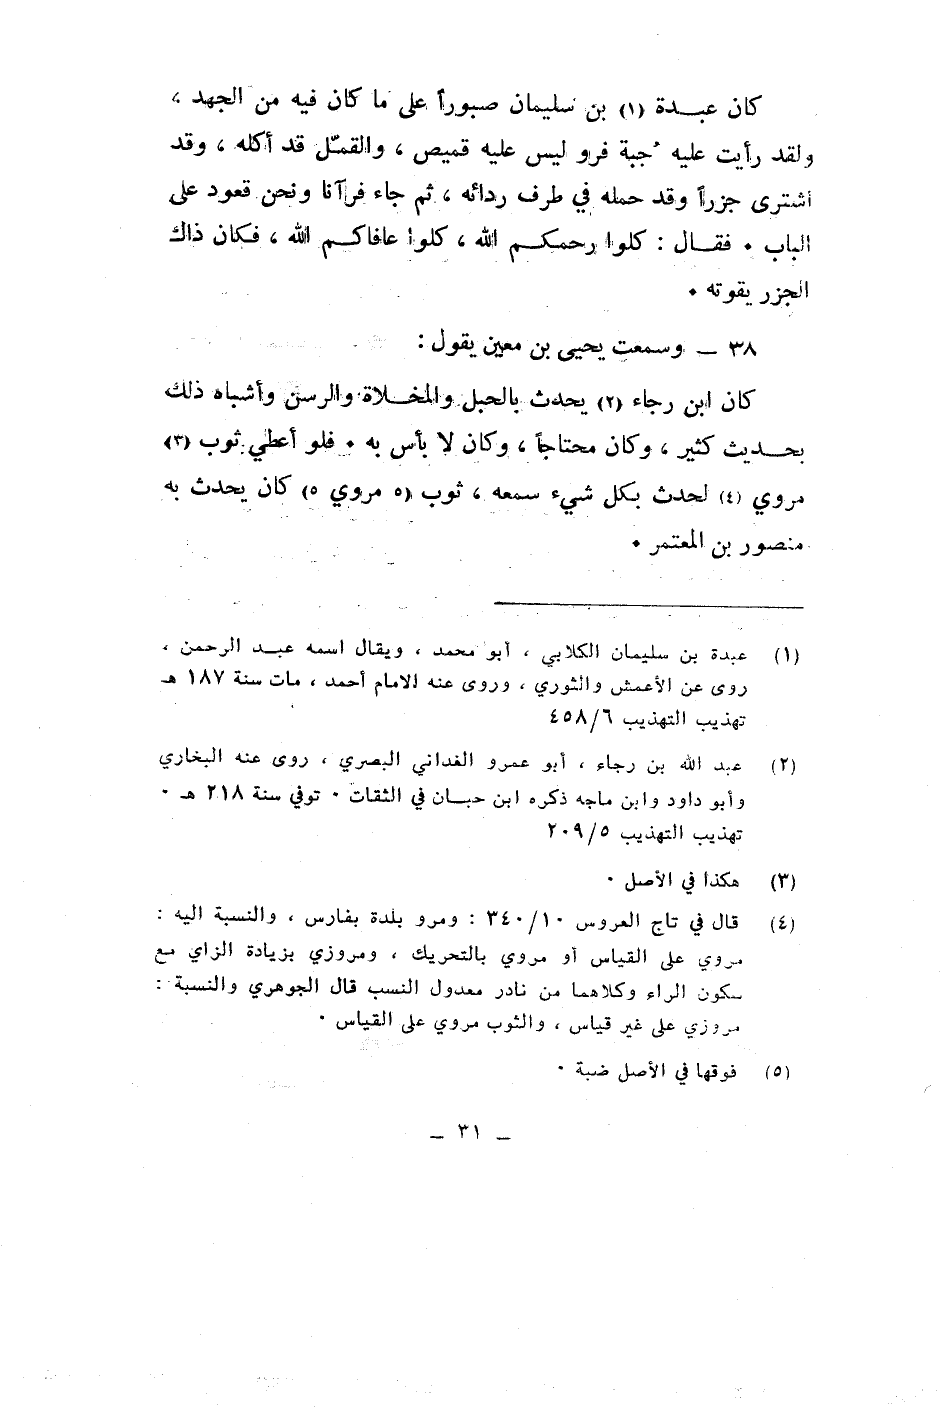 كان عبدة (١) بن سليمان صبوراً على ما كان فيه من الجهد ،
ولقد رأيت عليه جبة فرو ليس عليه قميص ، والقمّل قد أكله ، وقد
اشترى جزراً وقد حمله في طرف ردائه ، ثم جاء فرآنا ونحن قعود على
الباب . فقال : كلوا رحمكم الله ، كلوا عافاكم الله ، فكان ذاك
الجزر يقوته .
٣٨ – وسمعت يحيى بن معين يقول :
كان ابن رجاء (٢) يحدث بالحبل والمخلاة والرسن وأشباه ذلك
بحديث كثير ، وكان محتاجاً ، وكان لا بأس به . فلو أعطي ثوب (٣)
مروي (٤) لحدث بكل شيء سمعه ، ثوب (٥ مروي ٥) كان يحدث به
منصور بن المعتمر .
(١) عبدة بن سليمان الكلابي ، أبو محمد ، ويقال اسمه عبد الرحمن ،
روى عن الأعمش والثوري ، وروى عنه الامام أحمد ، مات سنة ١٨٧ هـ
تهذيب التهذيب ٤٥٨/٦
(٢) عبد الله بن رجاء ، أبو عمرو الغداني البصري ، روى عنه البخاري
وأبو داود وابن ماجه ذكره ابن حبان في الثقات . توفي سنة ٢١٨ هـ .
تهذيب التهذيب ٢٠٩/٥
(٣) هكذا في الأصل .
(٤) قال في تاج العروس ٣٤٠/١٠ : ومرو بلدة بفارس ، والنسبة اليه :
مروي على القياس أو مروي بالتحريك ، ومروزي بزيادة الزاي مع
سكون الراء وكلاهما من نادر معدول النسب قال الجوهري والنسبة :
مروزي على غير قياس ، والثوب مروي على القياس .
(٥) فوقها في الأصل ضبة .
– ٣١ –